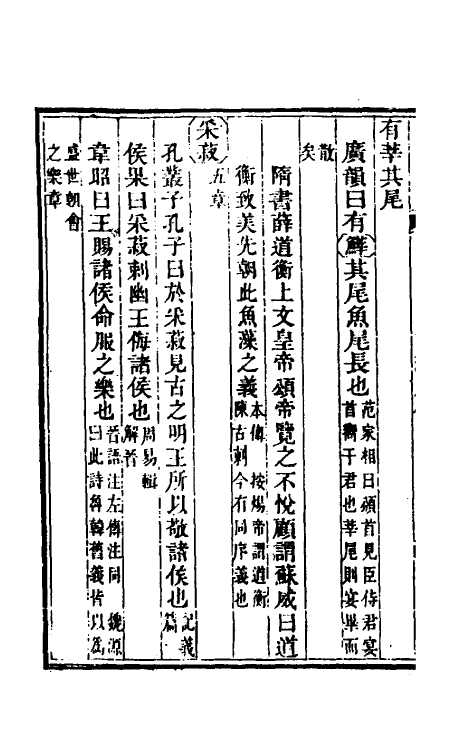 有莘其尾
廣韻曰有𩺰其尾魚尾長也范家相曰頒首見臣侍君宴
首嚮于君也莘尾則宴畢而
散
矣
隋書薛道衡上文皇帝頌帝覽之不悅顧謂蘇威曰道
衡致美先朝此魚藻之義本傳　按煬帝謂道衡
陳古刺今有同序義也
采菽五章
孔叢子孔子曰於采菽見古之明王所以敬諸侯也記義
篇
侯果曰采菽刺幽王侮諸侯也周易輯
解者
韋昭曰王賜諸侯命服之樂也晉語注左傳注同　魏源
曰此詩毛韓舊義皆以為
盛世朝會
之樂章